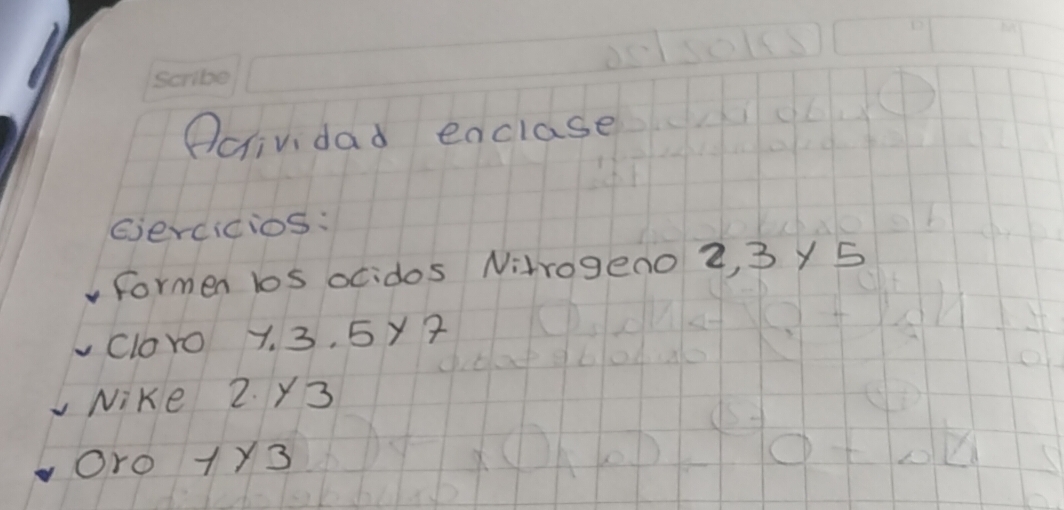 Scribe
Actividad enclase
Ejercicios:
formen los acidos Nitrogeno 2,3 y 5
Cloro 1,3,5 y 7
Nike 2. y 3
Oro 1 y 3